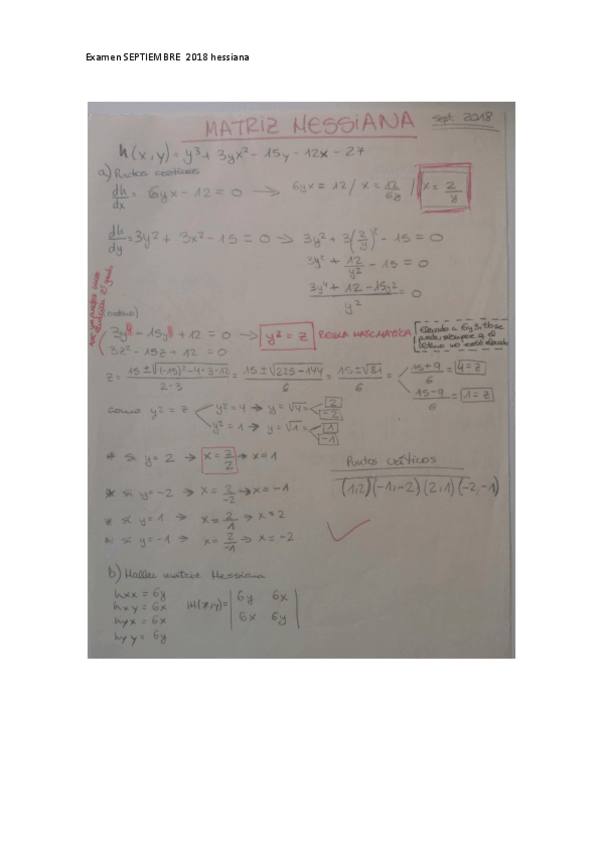 Examen SEPTIEMBRE 2018 hessiana
MATRIZ HESSIANA
Sept. 2018
h(x,y) = y³ + 3yx² - 15y - 12x - 27
a) Puntos críticos
dh/dx = 6yx - 12 = 0 → 6yx = 12 / x = 12/6y / x = 2/y
dh/dy = 3y² + 3x² - 15 = 0 → 3y² + 3(2/y)² - 15 = 0
3y² + 12/y² - 15 = 0
(3y⁴ + 12 - 15y²)/y² = 0
3y⁴ - 15y² + 12 = 0 → y² = z REGLA MATEMATICA
3z² - 15z + 12 = 0
z = (15 ± √((-15)² - 4·3·12))/(2·3) = (15 ± √(225 - 144))/6 = (15 ± √81)/6 = (15+9)/6 = 4 = z
(15-9)/6 = 1 = z
como y² = z y² = 4 → y = √4 = 2
-2
y² = 1 → y = √1 = 1
-1
* si y = 2 → x = 2/2 → x = 1
* si y = -2 → x = 2/-2 → x = -1
* si y = 1 → x = 2/1 → x = 2
* si y = -1 → x = 2/-1 → x = -2
Puntos críticos
(1,2) (-1,-2) (2,1) (-2,-1)
b) Hallar matriz Hessiana
hxx = 6y
hxy = 6x
hyx = 6x
hyy = 6y
H(x,y) = | 6y 6x |
| 6x 6y |